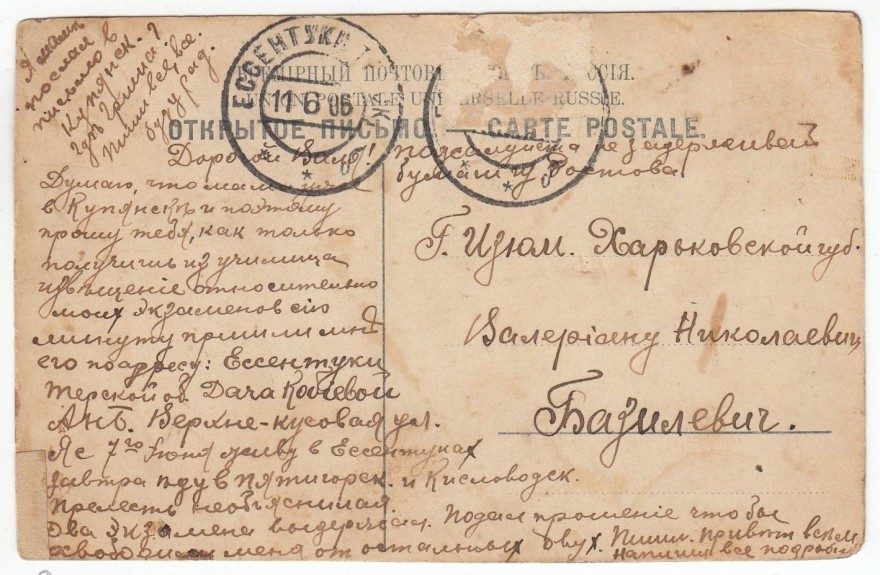 Я маме
послал
письмо в
Купянск.
гдѣ Гриша?
пиши все, все.
буду рад.
ЕССЕНТУКИ
11 6 06
ВСЕМІРНЫЙ ПОЧТОВЫЙ РОССІЯ.
UNION POSTALE UNIVERSELLE RUSSIE.
ОТКРЫТОЕ ПИСЬМО. — CARTE POSTALE.
Дорогой Валя!
Думаю, что мама уж
в Купянскѣ и поэтому
прошу тебя, как только
получишь из училища
извѣщение относительно
моих экзаменов сію
минуту пришли мнѣ
его по адресу: Ессентуки
Терской об Дача
Верхне-кусовая ул.
Я с 7го Іюня живу в Ессентуках
завтра иду в Пятигорск. и Кисловодск.
Прелесть необъяснимая
Два экзамена выдержал. Подал прошение что бы
освободили меня от остальных двух. Пиши. Привѣт всѣм
напиши все подробно
пожалуйста не задерживай
бумаги из Ростова
Г. Изюм. Харьковской губ.
Валеріану Николаевич
Базилевич.